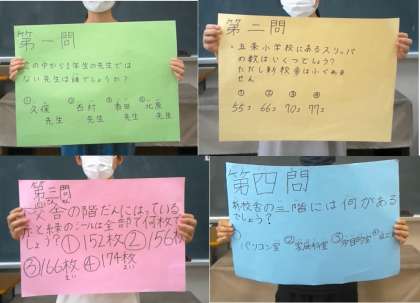 第一問
の中から2年生の先生では
ない先生は誰でしょうか？
① ② ③ ④
久保 西村 春田 北原
先生 先生 先生 先生
第二問
・五条小学校にあるスリッパ
の数はいくつでしょう？
ただし新校舎はふくみま
せん
① ② ③ ④
55コ 66コ 70コ 77コ
第三問
校舎の階だんにはっている
赤と緑のシールは全部で何枚
でしょう？①152枚②156枚
③166枚④174枚
第四問
新校舎の二階には何がある
でしょう？
①パソコン室 ②家庭科室 ③